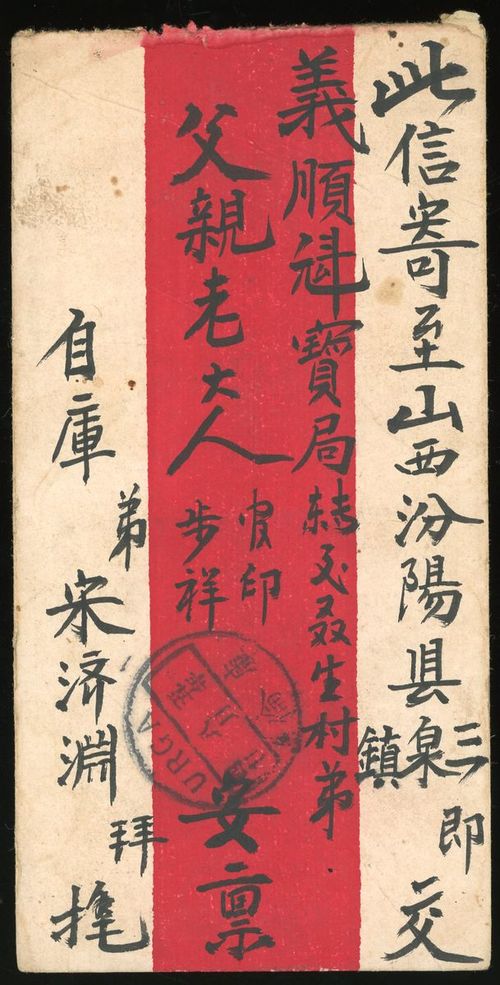 此信寄至山西汾陽县三泉鎮即交
義順祥寳局轉交聂生村弟
父親老大人官印步祥安禀
自庫弟宋济淵拜
URGA